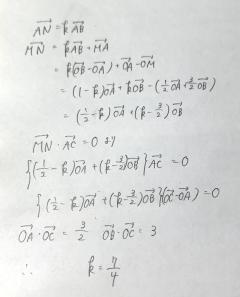 $\overrightarrow{AN} = k\overrightarrow{AB}$
$\overrightarrow{MN} = k\overrightarrow{AB} + \overrightarrow{MA}$
$= k(\overrightarrow{OB} - \overrightarrow{OA}) + \overrightarrow{OA} - \overrightarrow{OM}$
$= (1-k)\overrightarrow{OA} + k\overrightarrow{OB} - (\frac{1}{2}\overrightarrow{OA} + \frac{3}{2}\overrightarrow{OB})$
$= (\frac{1}{2}-k)\overrightarrow{OA} + (k-\frac{3}{2})\overrightarrow{OB}$
$\overrightarrow{MN} \cdot \overrightarrow{AC} = 0$ より
$\{(\frac{1}{2}-k)\overrightarrow{OA} + (k-\frac{3}{2})\overrightarrow{OB}\}\overrightarrow{AC} = 0$
$\{(\frac{1}{2}-k)\overrightarrow{OA} + (k-\frac{3}{2})\overrightarrow{OB}\}(\overrightarrow{OC}-\overrightarrow{OA}) = 0$
$\overrightarrow{OA} \cdot \overrightarrow{OC} = \frac{3}{2}$ $\overrightarrow{OB} \cdot \overrightarrow{OC} = 3$
∴ $k = \frac{7}{4}$